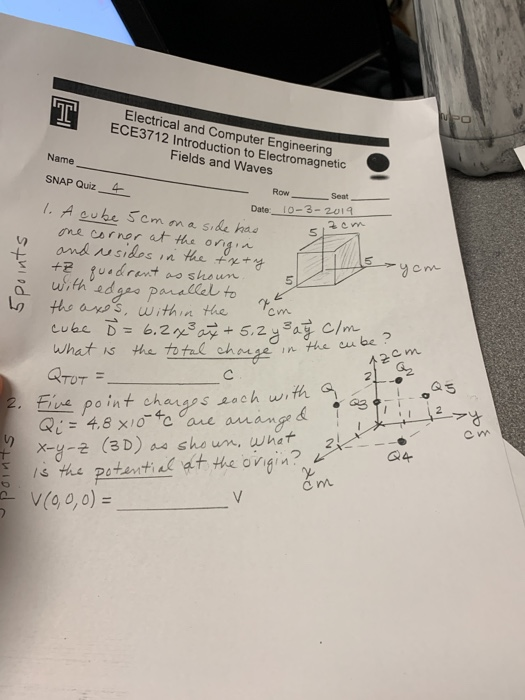 T
Electrical and Computer Engineering
ECE3712 Introduction to Electromagnetic
Fields and Waves
Name
Row Seat
SNAP Quiz 4
Date: 10-3-2019
1. A cube 5cm on a side has
one corner at the origin
and resides in the +x+y
+z quadrant as shown
with edges parallel to
the axes. Within the
cube D = 6.2x³ax + 5.2y³ay C/m
What is the total charge in the cube?
QTOT = C
5 points
5 z cm
5 y cm
5
x cm
2. Five point charges each with
Qi = 4.8 x10⁻⁴C are arranged
x-y-z (3D) as shown. What
is the potential at the origin?
V(0,0,0) = V
points
z cm
2 Q2
Q Q3 Q5
1 1 1 2 y
cm
2 Q4
x
cm